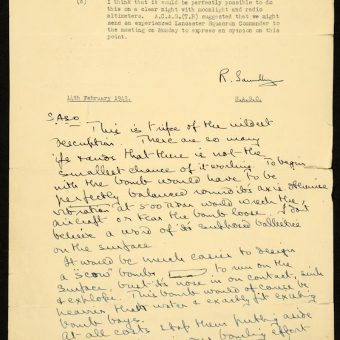 (8) I think that it would be perfectly possible to do
this on a clear night with moonlight and radio
altimeters. A.C.A.S.(T.R) suggested that we might
send an experienced Lancaster Squadron Commander to
the meeting on Monday to express an opinion on this
point.
R. Saundby
14th February 1943. S.A.S.O.
S.A.S.O
This is tripe of the wildest
description. There are so many
ifs & ands that there is not the
smallest chance of it working. To begin
with the bomb would have to be
perfectly balanced round its axis otherwise
vibration at 500 RPM would wreck the
aircraft or tear the bomb loose. I don't
believe a word of its supposed ballistics
on the surface
It would be much easier to design
a "scow" bomb to run on the
surface, bust its nose in on contact, sink
& explode. This bomb would of course be
heavier than water & exactly fit existing
bomb bays.
At all costs stop them putting aside
bombing effort